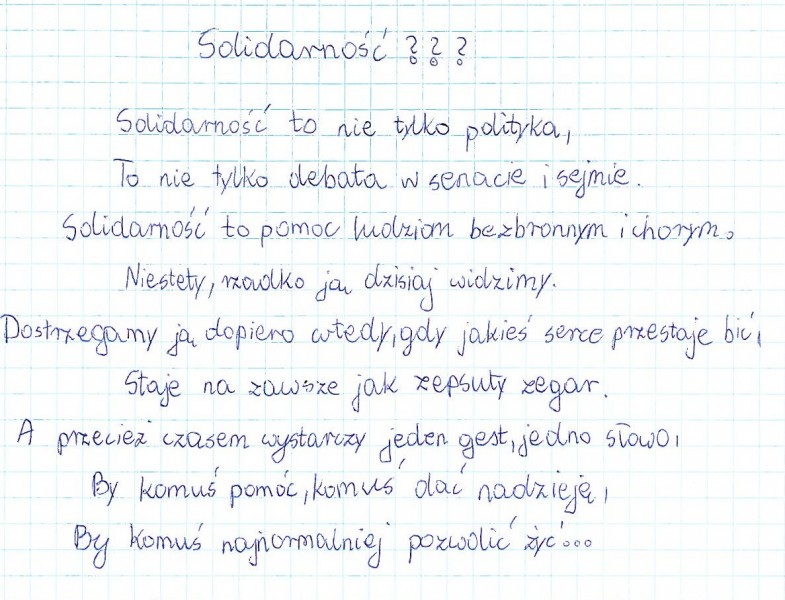 Solidarność ???
Solidarność to nie tylko polityka,
To nie tylko debata w senacie i sejmie.
Solidarność to pomoc ludziom bezbronnym i chorym.
Niestety, rzadko ją dzisiaj widzimy.
Dostrzegamy ją dopiero wtedy, gdy jakieś serce przestaje bić,
Staje na zawsze jak zepsuty zegar.
A przecież czasem wystarczy jeden gest, jedno słowo,
By komuś pomóc, komuś dać nadzieję,
By komuś najnormalniej pozwolić żyć...